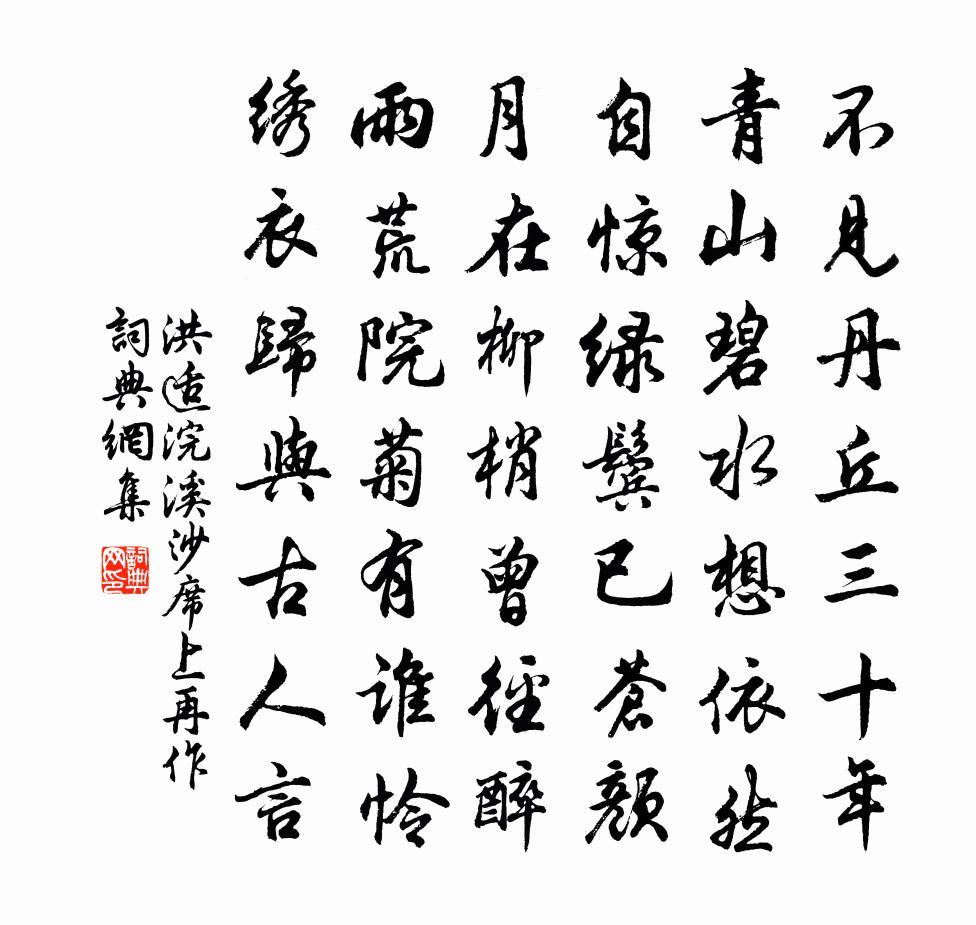 不見丹丘三十年
青山碧水想依然
自惊緑鬓已蒼顔
月在柳梢曾徑醉
雨荒院菊有誰怜
绣衣歸與古人言
洪适浣溪沙席上再作
詞典網集
詞典网印